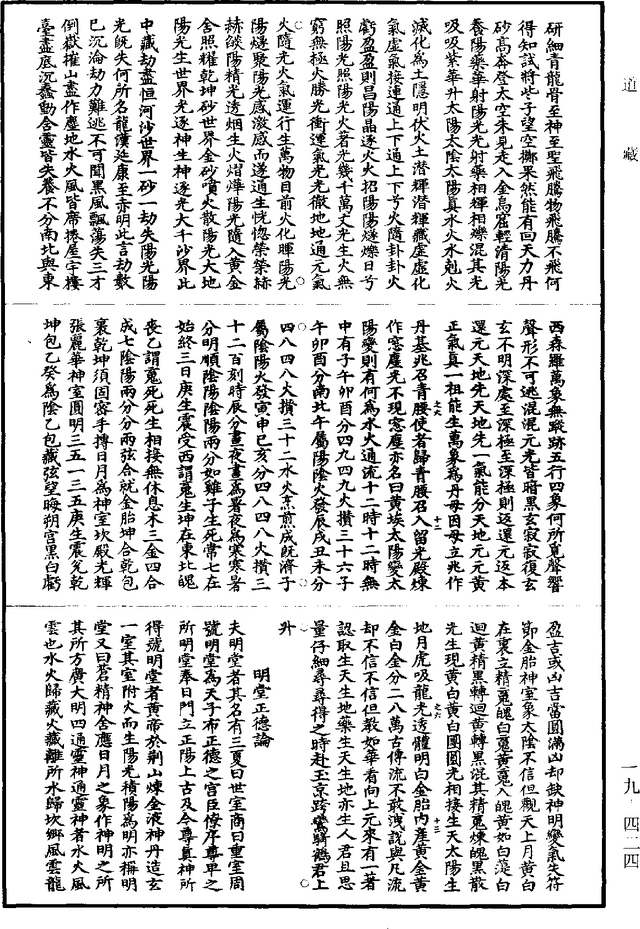 道藏
研細青龍骨至神至聖飛騰物飛騰不飛何
得知試將些子望空擲果然能有回天力丹
砂高奔登太空未見走入金烏窟輕清陽光
養陽藥華射陽光光射藥相輝相爍混其光
吸吸紫華升太陽太陰太陽真水火水剋火
滅化為土隱明伏火土潛輝潛輝藏虛虛化
氣虛氣接連通上下通上下兮火隨卦卦火
虧盈盈則昌陽晶逐火火招陽陽燧爍日兮
照陽光照陽火著光幾千萬丈光生火無
窮無極火勝光衝運氣光光徹地地通元氣
火隨光火氣運行生萬物目前火化暉陽光
陽燧聚陽光感激感而遂通生恍惚縈縈赫
赫燄陽精光透烟生火㷸燁陽光隨入黃金
舍照耀乾坤砂世界金砂噴火散陽光大地
陽光生世界光逐神生神逐光大千沙界此
中藏劫盡恒河沙世界一砂一劫失陽光陽
光旣失何所名龍漢延康至赤明此言劫數
已沉淪劫力難逃不可聞黑風飄蕩失三才
倒嶽摧山盡作塵地水火風皆席捲屋宇樓
臺盡底沉蠢動含靈皆失養不分南北與東
西森羅萬象無蹤跡五行四象何所覓聲響
聲形不可逃混混元光皆暗黑玄寂寂復玄
玄不明深處至深極至深極則返還元返本
還元天地先天地先一氣能分天地元元黃
正氣真一祖能生萬象為丹母因母立兆作
丹基兆召青腰使者歸青腰召入留光殿煉
作窓塵光不現窓塵亦名曰黃埃太陽變太
陽變則有何為水火通流十二時十二時無
中有子午卯酉分四九四九火攢三十六子
午卯酉分南北午屬陽陰火發辰戌丑未分
四八四八火攢三十二水火烹煎成旣濟子
屬陰陽火發寅申巳亥分四八四八火攢三
十二百刻時辰分晝夜晝為暑夜為寒寒暑
分明順陰陽陰陽兩分如雞子生死常七在
始終三日庚生震受西謂䰟生坤在東北魄
喪乙謂䰟死死生相接無休息木三金四合
成七陰陽兩分分兩弦合就金胎坤合乾包
裹乾坤須固密手摶日月為神室坎殿光輝
張麗華神室圓明三五一三五庚生震兌乾
坤包乙癸為陰乙包藏弦望晦朔宫黑白虧
盈吉或凶吉當圓滿凶却缺神明變氣失符
節金胎神室象太陰不信但觀天上月黄白
在裏立精䰟魄白䰟黃䰟入魄黃如白蕅白
迴黄精黑轉迴黄轉黑混其精䰟煉魄黑散
先生現黄白黄白團圓光相接生天太陽生
地月虎吸龍光透體明白金胎内產黄金黄
金白金分二八萬古傳流不敢洩說與凡流
却不信不信但教如華看向上元來有一著
認取生天生地藥生天生地亦生人君且思
量仔細尋尋得之時赴玉京跨鸞騎鶴君上
升
明堂正德論
夫明堂者其名有三夏曰世室商曰重室周
號明堂為天子布正德之宫臣倿序尊卑之
所明堂奉日門立正陽上古及今尊真神所
得號明堂者黃帝於荆山煉金液神丹造玄
一室其室附火而生陽光積陽為明亦稱明
堂又曰蒼精神舍應日月之象作神明之所
其所方廣大明四通靈神通靈神者水火風
雲也水火歸藏火藏離所水歸坎鄉風雲龍
一九‧四二四